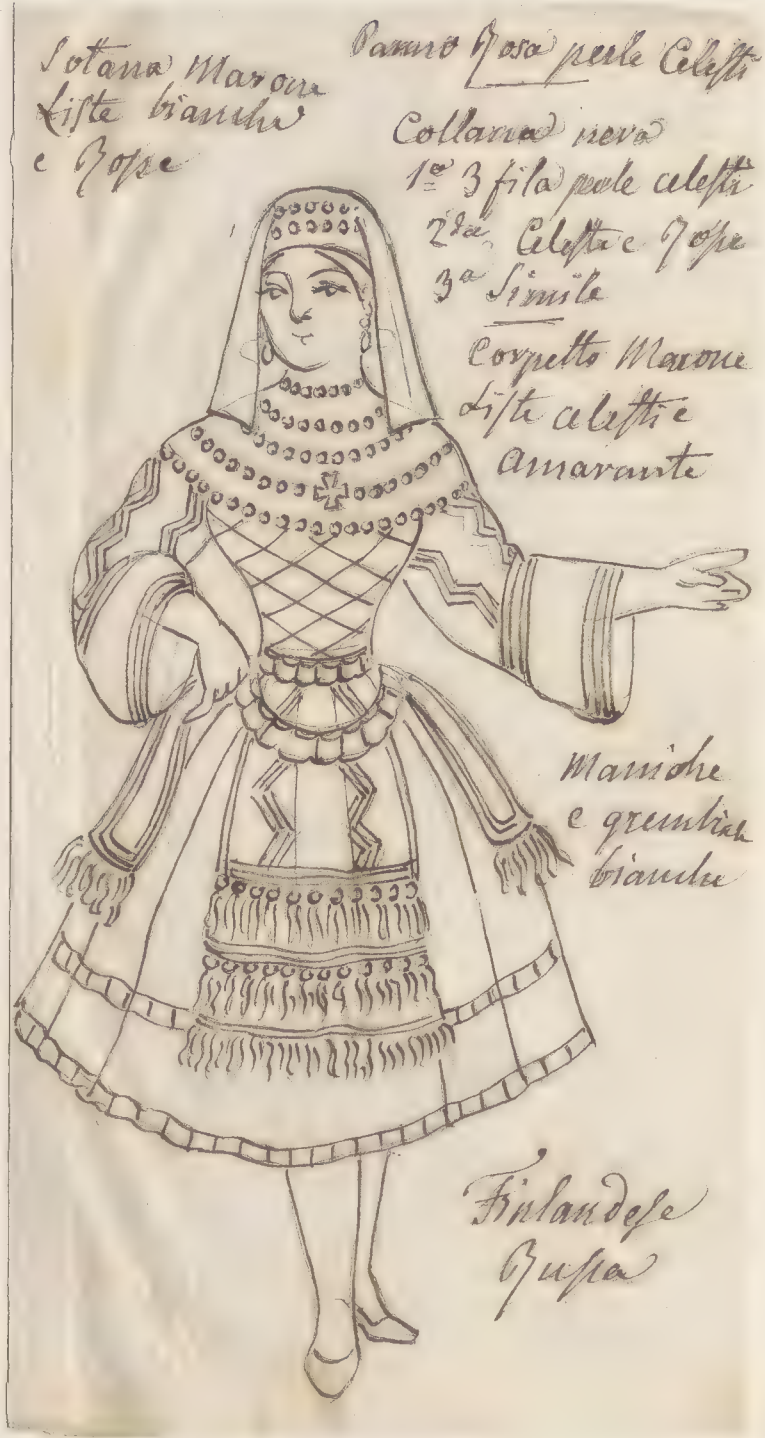 Sottana Marone
Liste bianche
e Rosse
Panno Rosa perle Celesti
Collana nera
1ª 3 fila perle celesti
2da Celesti e Rosse
3ª Simile
Corpetto Marone
Liste celesti e
amarante
Maniche
e grembiale
bianche
Finlandese
Russa